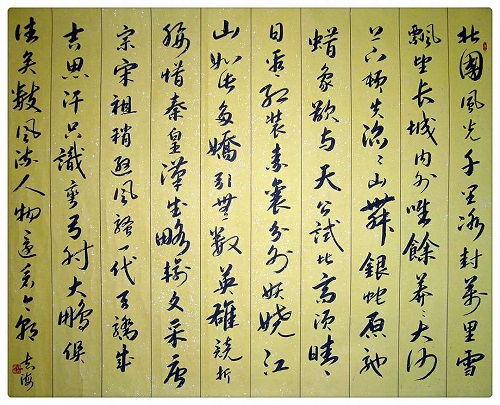 北國風光千里冰封萬里雪
飄望长城内外唯餘莽々大河
上下頓失滔々山舞銀蛇原馳
蜡象欲与天公試比高须晴
日看红装素裹分外妖娆江
山如此多嬌引無數英雄競折
腰惜秦皇漢武略输文采唐
宗宋祖稍逊風騷一代天驕成
吉思汗只識彎弓射大鵰俱
往矣數風流人物還看今朝
志海